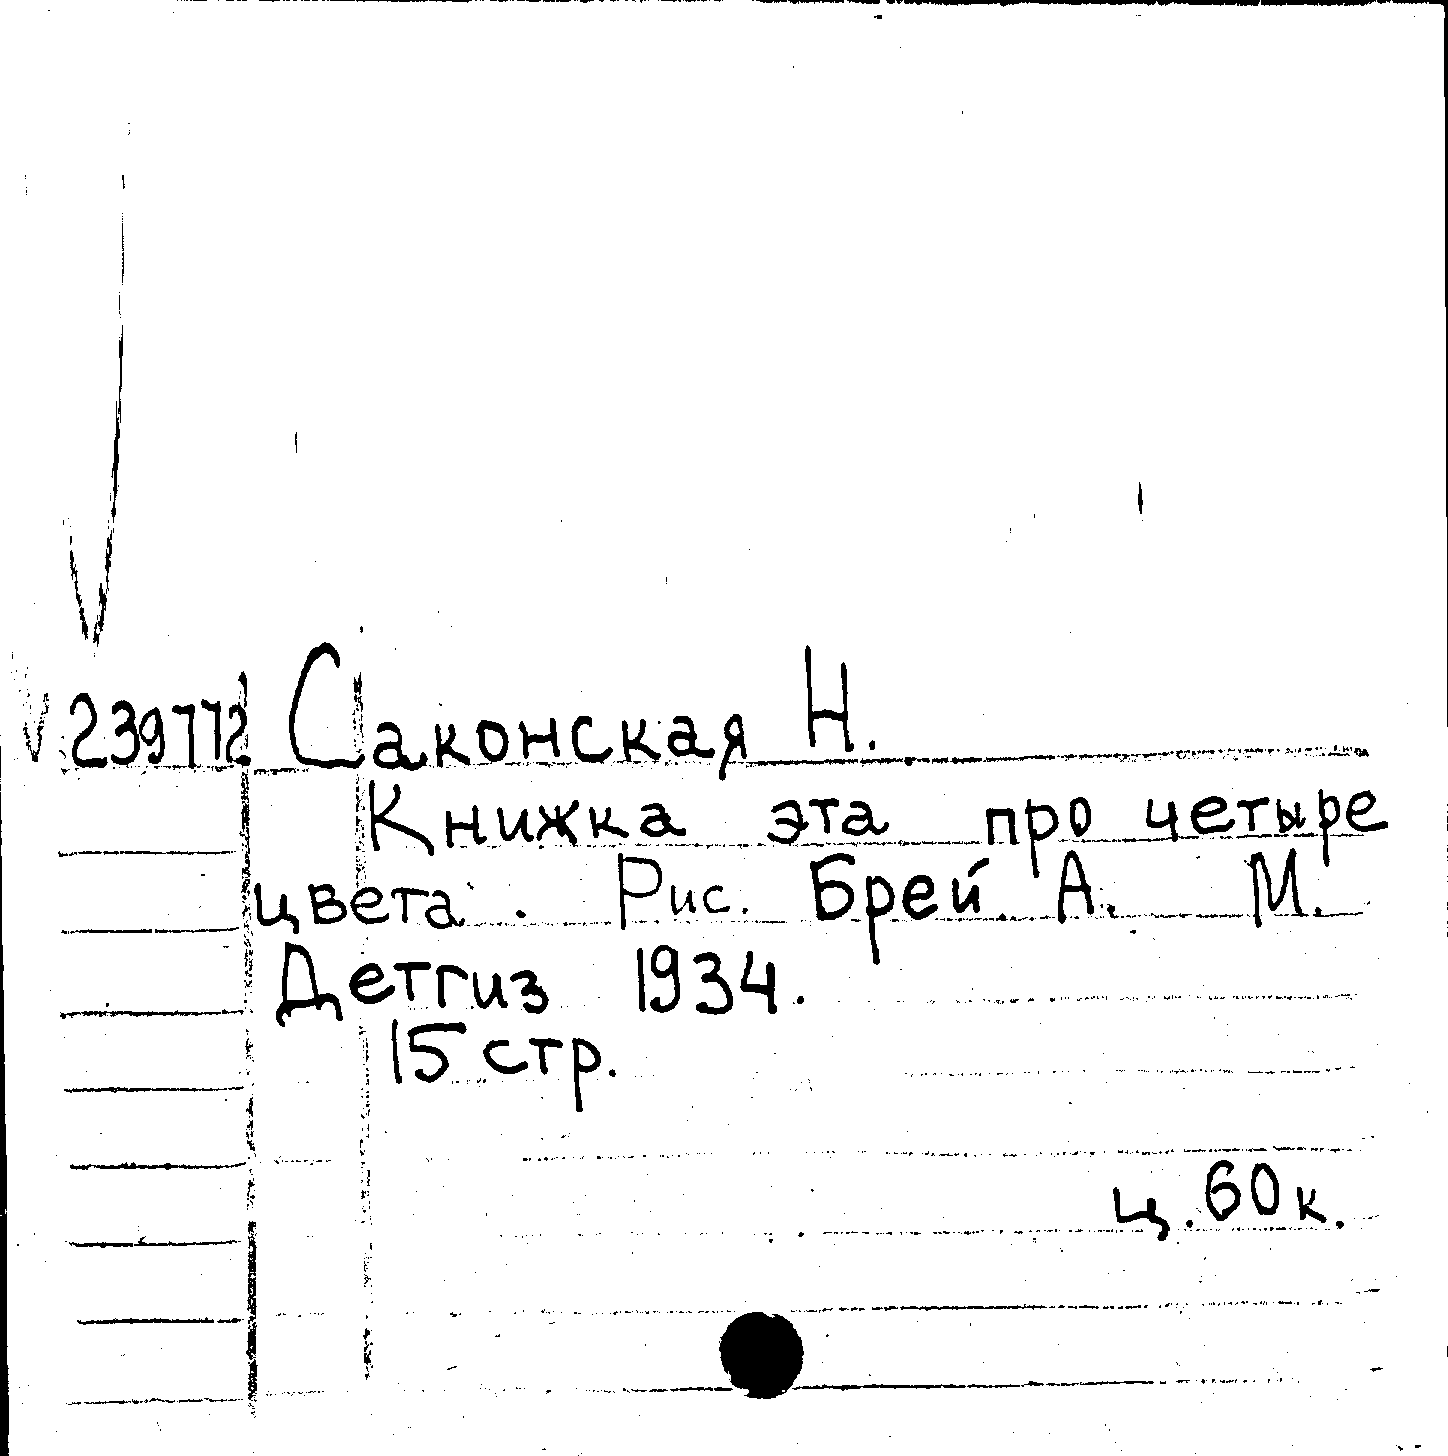 239772 Саконская Н.
Книжка эта про четыре
цвета. Рис. Брей А. М.
Детгиз 1934.
15 стр.
ц. 60 к.